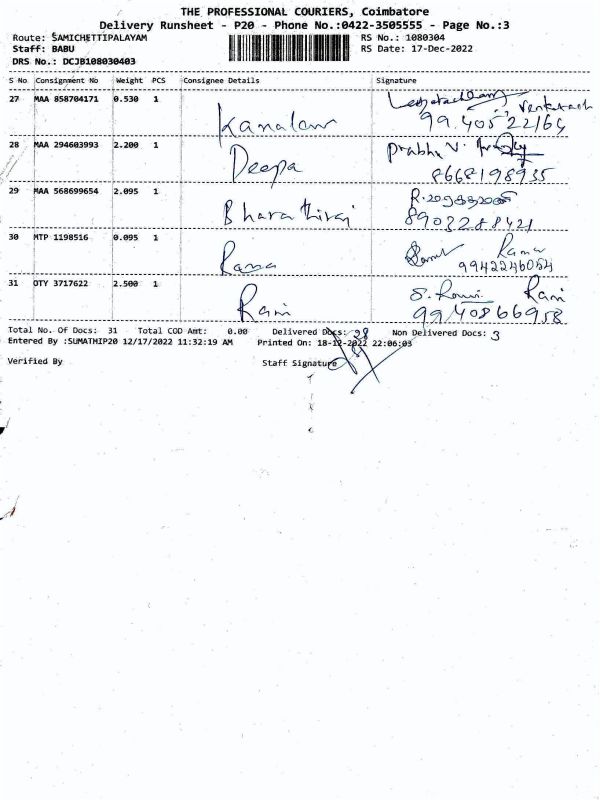 THE PROFESSIONAL COURIERS, Coimbatore
Delivery Runsheet - P20 - Phone No.:0422-3505555 - Page No.:3
Route: SAMICHETTIPALAYAM RS No.: 1080304
Staff: BABU RS Date: 17-Dec-2022
DRS No.: DCJB108030403
S No Consignment No Weight PCS Consignee Details Signature
27 MAA 858704171 0.530 1 Venkatesh
99.40522164
28 MAA 294603993 2.200 1 Deepa Prabhu V.
8668198935
29 MAA 568699654 2.095 1 Bharathiraj
8903288421
30 MTP 1198516 0.095 1 Rama Rama
9942246054
31 OTY 3717622 2.500 1 Rani S. Rani Rani
9940866958
Total No. Of Docs: 31 Total COD Amt: 0.00 Delivered Docs: 28 Non Delivered Docs: 3
Entered By :SUMATHIP20 12/17/2022 11:32:19 AM Printed On: 18-12-2022 22:06:03
Verified By Staff Signature